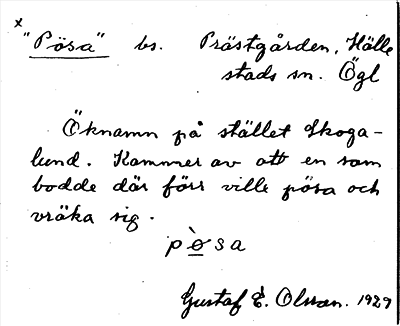 x
"Pösa" bs. Prästgården, Hälle
stads sn. Ögl
Öknamn på stället Skoga-
lund. Kommer av att en som
bodde där förr ville pösa och
vräka sig.
pò̱sa
Gustaf E. Olsson. 1929